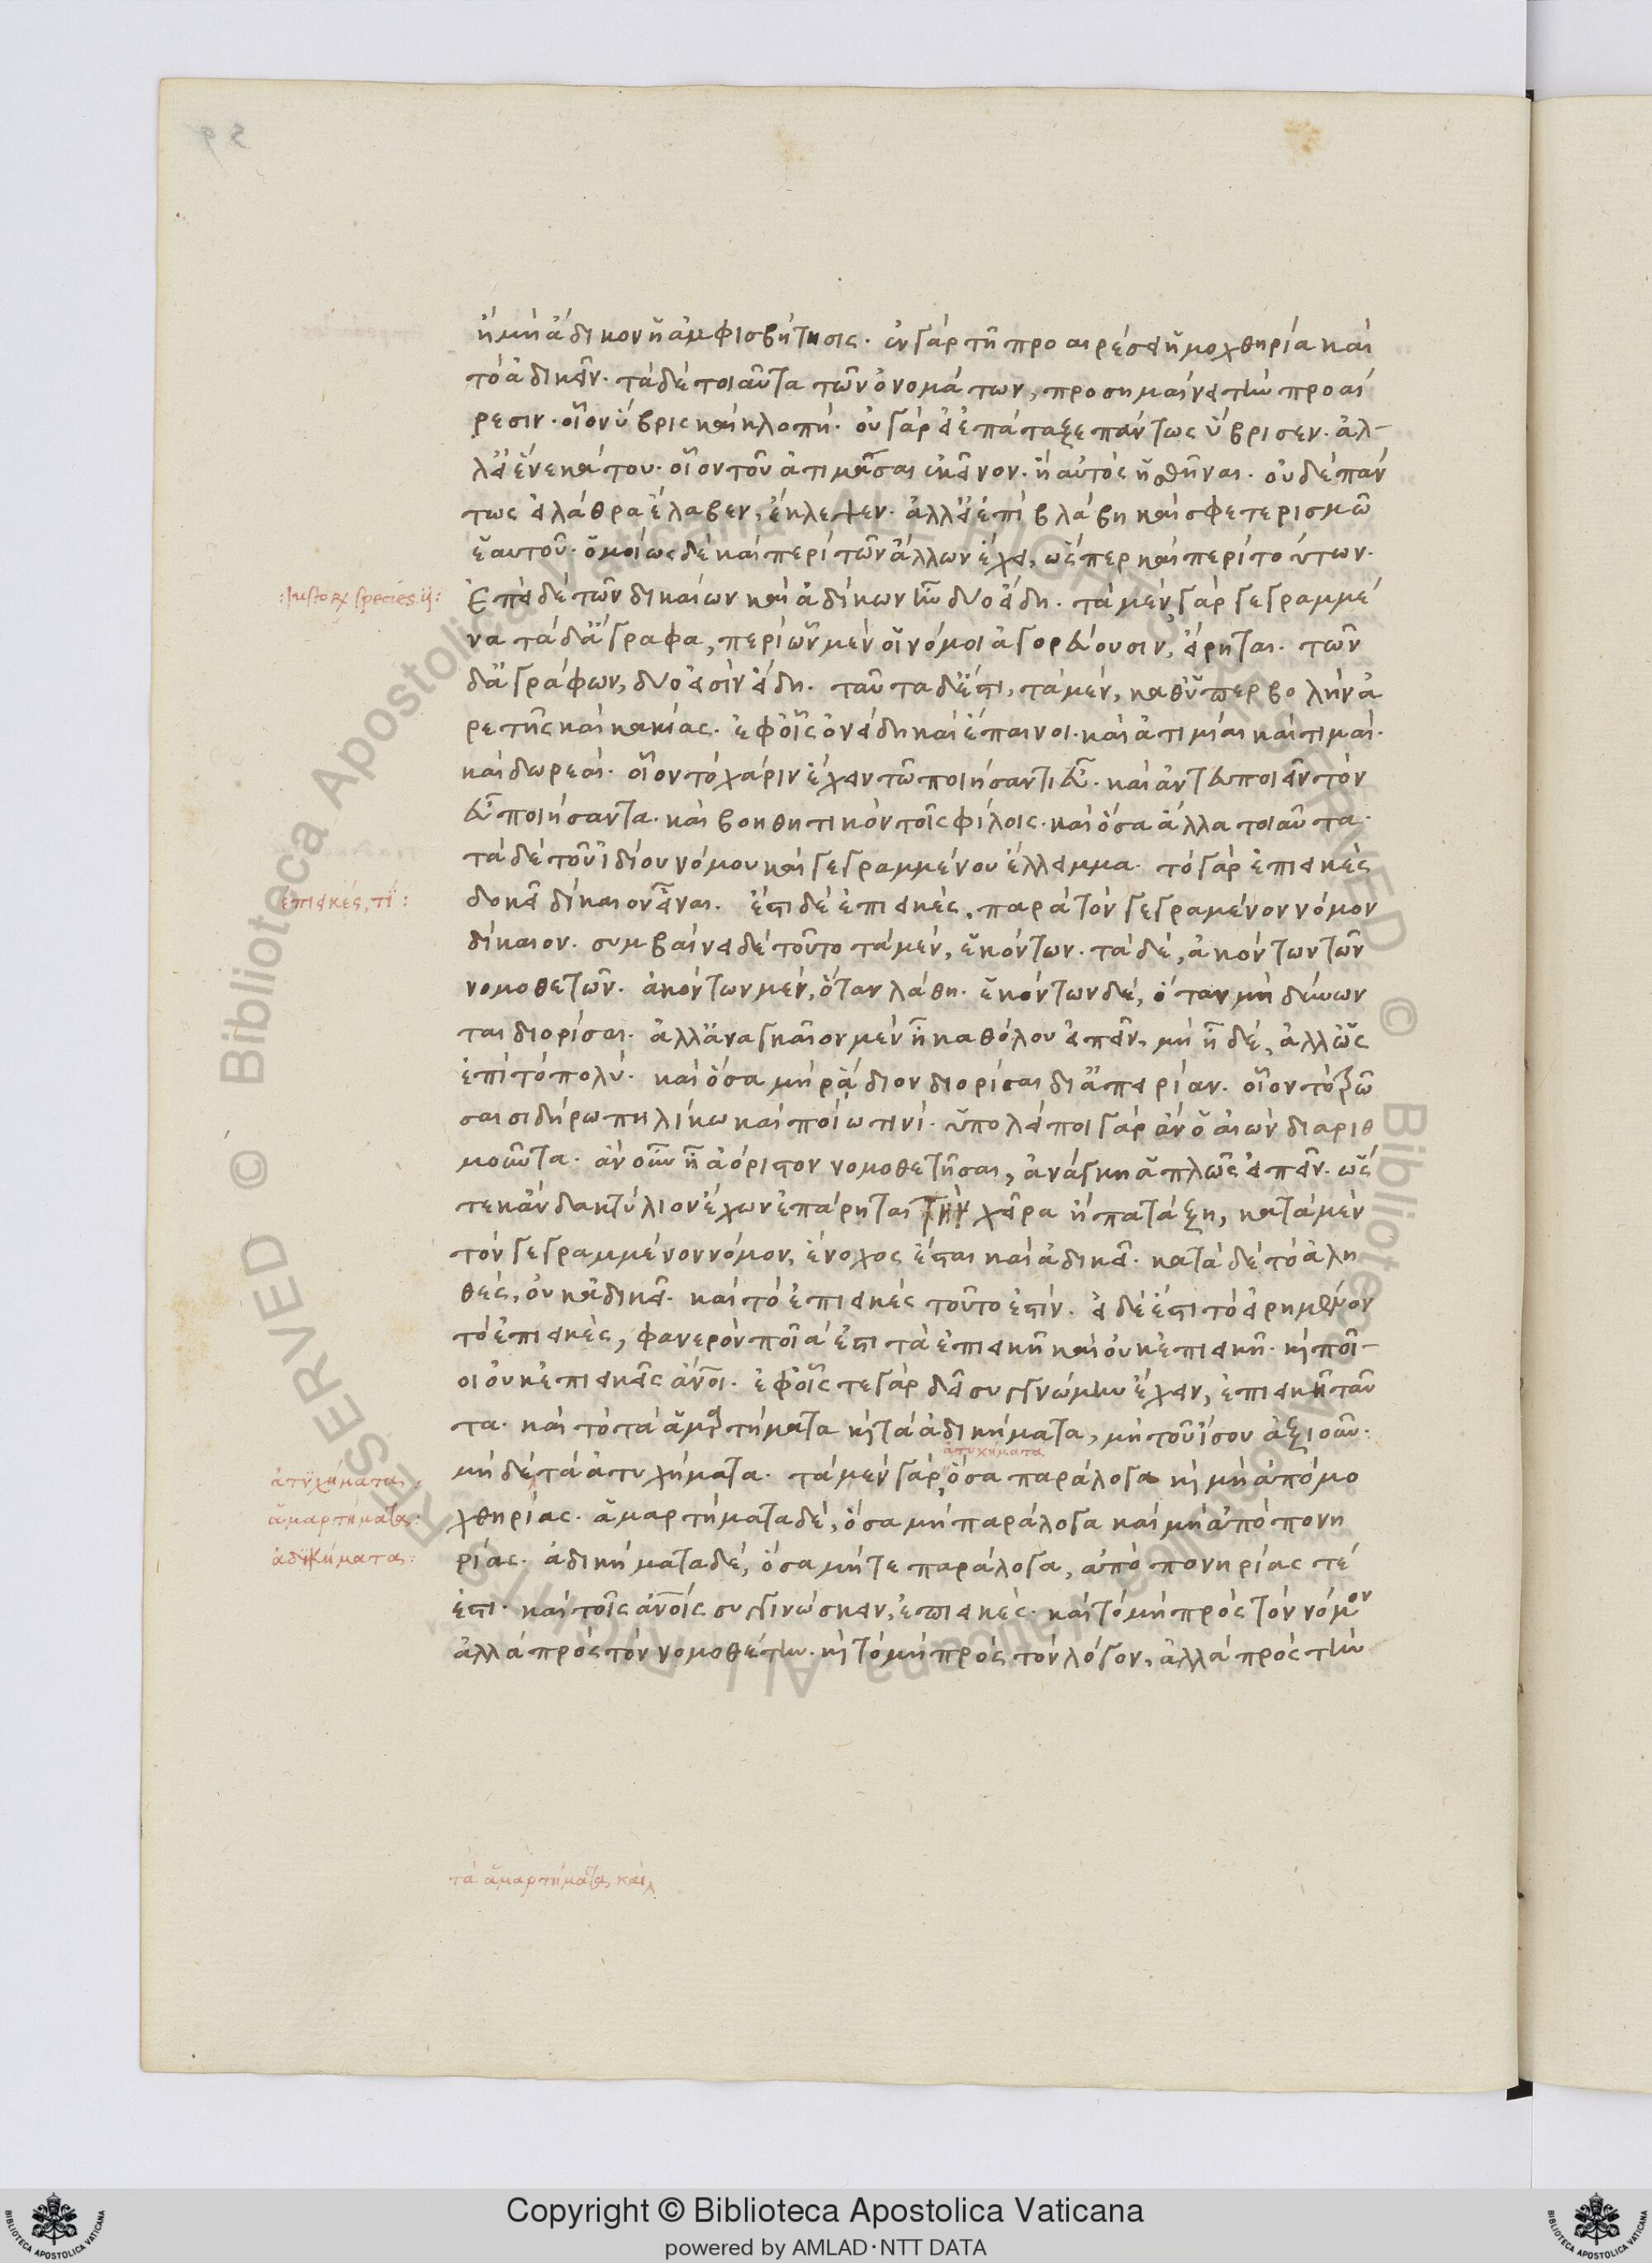 ἢ μὴ ἄδικον ἡ ἀμφισβήτησις. ἐν γὰρ τῆ προαιρέσει ἡ μοχθηρία καὶ
τὸ ἀδικεῖν. τὰ δὲ τοιαῦτα τῶν ὀνομάτων, προσημαίνει τὴν προαί
ρεσιν. οἷον ὕβρις καὶ κλοπή. οὐ γὰρ εἰ ἐπάταξε πάντως ὕβρισεν. ἀλ-
λ' εἰ ἕνεκά του. οἷον τοῦ ἀτιμᾶσαι ἐκεῖνον. ἢ αὐτὸς ἡσθῆναι. οὐδὲ πάν
τως εἰ λάθρα ἔλαβεν, ἔκλεψεν. ἀλλ' εἰ ἐπὶ βλάβη καὶ σφετερισμῶ
ἑαυτοῦ. ὁμοίως δὲ καὶ περὶ τῶν ἄλλων ἔχει, ὥσπερ καὶ περὶ τούτων.
:Justorum species ij:
Ἐπεὶ δὲ τῶν δικαίων καὶ ἀδίκων ἦν δύο εἴδη. τὰ μὲν γὰρ γεγραμμέ
να τὰ δ' ἄγραφα, περὶ ὧν μὲν οἱ νόμοι ἀγορεύουσιν, εἴρηται. τῶν
δ' ἀγράφων, δύο εἰσὶν εἴδη. ταῦτα δ' ἔστι, τὰ μὲν, καθ' ὑπερβολὴν ἀ
ρετῆς καὶ κακίας. ἐφ' οἷς ὀνείδη καὶ ἔπαινοι. καὶ ἀτιμίαι καὶ τιμαί.
καὶ δωρεαί. οἷον τὸ χάριν ἔχειν τῶ ποιήσαντι εὖ. καὶ ἀντευποιεῖν τὸν
εὖ ποιήσαντα. καὶ βοηθητικὸν τοῖς φίλοις. καὶ ὅσα ἄλλα τοιαῦτα.
τὰ δὲ τοῦ ἰδίου νόμου καὶ γεγραμμένου ἔλλειμμα. τὸ γὰρ ἐπιεικὲς
ἐπιεικές, τί:
δοκεῖ δίκαιον εἶναι. ἔστι δὲ ἐπιεικὲς, παρὰ τὸν γεγραμένον νόμον
δίκαιον. συμβαίνει δὲ τοῦτο τὰ μὲν, ἑκόντων. τὰ δὲ, ἀκόντων τῶν
νομοθετῶν. ἀκόντων μὲν, ὅταν λάθη. ἑκόντων δὲ, ὅταν μὴ δύνων
ται διορίσαι. ἀλλ' ἀναγκαῖον μὲν ἦ καθόλου εἰπεῖν, μὴ ἦ δὲ, ἀλλ' ὡς
ἐπὶ τὸ πολύ. καὶ ὅσα μὴ ῥάδιον διορίσαι δι' ἀπειρίαν. οἷον τὸ τρῶ
σαι σιδήρω πηλίκω καὶ ποίω τινί. ὑπολείποι γὰρ ἂν ὁ αἰὼν διαριθ
μοῦντα. ἂν οὖν ἦ ἀόριστον νομοθετῆσαι, ἀνάγκη ἁπλῶς εἰπεῖν. ὥσ
τε κἂν δακτύλιον ἔχων ἐπάρηται τὴν χεῖρα ἢ πατάξη, κατὰ μὲν
τὸν γεγραμμένον νόμον, ἔνοχος ἔσται καὶ ἀδικεῖ. κατὰ δὲ τὸ ἀλη
θές, οὐκ ἀδικεῖ. καὶ τὸ ἐπιεικὲς τοῦτο ἐστίν. εἰ δὲ ἔστι τὸ εἰρημένον
τὸ ἐπιεικὲς, φανερὸν ποῖά ἐστι τὰ ἐπιεικῆ καὶ οὐκ ἐπιεικῆ. καὶ ποῖ-
οι οὐκ ἐπιεικεῖς ἄνοι. ἐφ' οἷς τε γὰρ δεῖ συγγνώμην ἔχειν, ἐπιεικῆ ταῦ
τα. καὶ τὸ τὰ ἁμαρτήματα καὶ τὰ ἀδικήματα, μὴ τοῦ ἴσου ἀξιοῦν.
ἀτυχήματα
ἀτυχήματα:
μὴ δὲ τὰ ἀτυχήματα. τὰ μὲν γὰρ, ὅσα παράλογα καὶ μὴ ἀπὸ μο
ἁμαρτήματα:
χθηρίας. ἁμαρτήματα δὲ, ὅσα μὴ παράλογα καὶ μὴ ἀπὸ πονη
ἀδικήματα:
ρίας. ἀδικήματα δὲ, ὅσα μήτε παράλογα, ἀπὸ πονηρίας τέ
ἐστι. καὶ τοῖς ἀνοις συγγινώσκειν, ἐπιεικές. καὶ τὸ μὴ πρὸς τὸν νόμον
ἀλλὰ πρὸς τὸν νομοθέτην. καὶ τὸ μὴ πρὸς τὸν λόγον, ἀλλὰ πρὸς τὴν
τὰ ἁμαρτήματα, καὶ
© Biblioteca Apostolica Vaticana ALL RIGHTS RESERVED
Copyright © Biblioteca Apostolica Vaticana
powered by AMLAD·NTT DATA
BIBLIOTECA APOSTOLICA VATICANA
BIBLIOTECA APOSTOLICA VATICANA